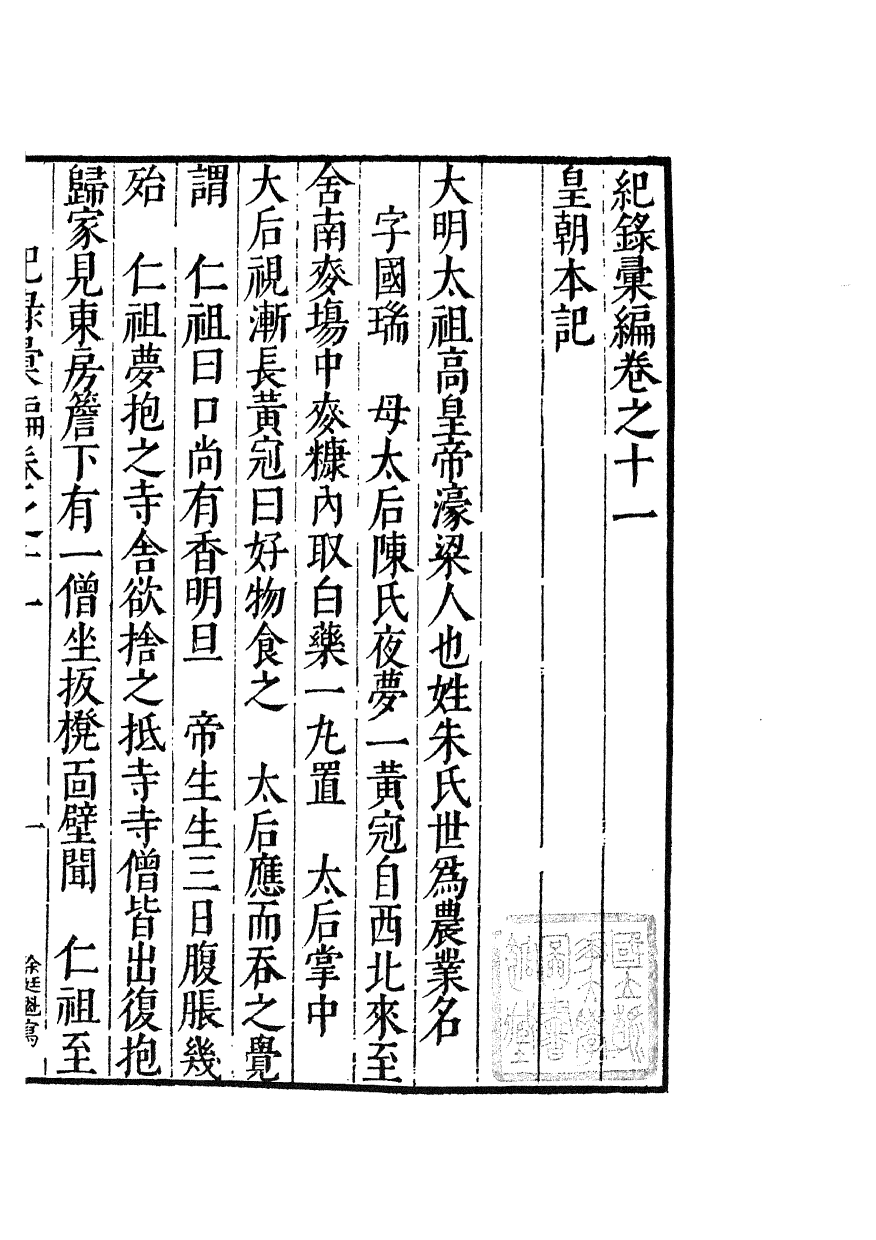 紀錄彙編卷之十一
皇朝本記
大明太祖高皇帝濠梁人也姓朱氏世爲農業名
字國瑞　母太后陳氏夜夢一黃冠自西北來至
舍南麥場中麥糠內取白藥一丸置　太后掌中
太后視漸長黃冠曰好物食之　太后應而吞之覺
謂　仁祖曰口尚有香明旦　帝生生三日腹脹幾
殆　仁祖夢抱之寺舍欲捨之抵寺寺僧皆出復抱
歸家見東房簷下有一僧坐板櫈面壁聞　仁祖至
紀錄彙編卷之十一　一　徐廷魁寫